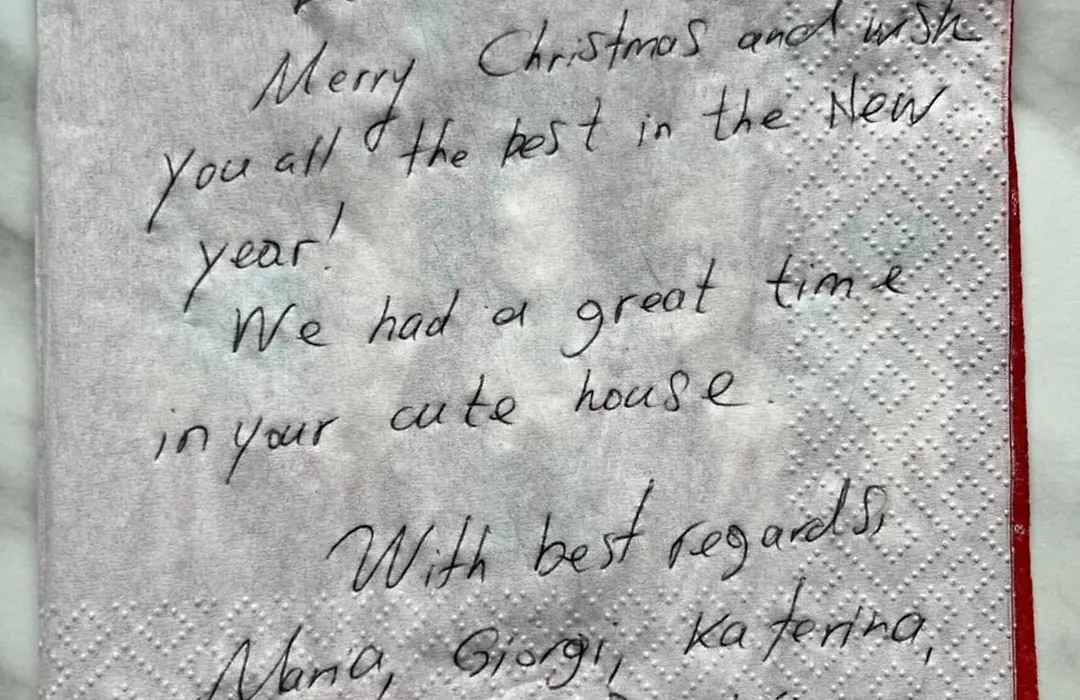 Merry Christmas and wish
you all the best in the New
year!
We had a great time
in your cute house.
With best regards,
Maria, Giorgi, Katerina,